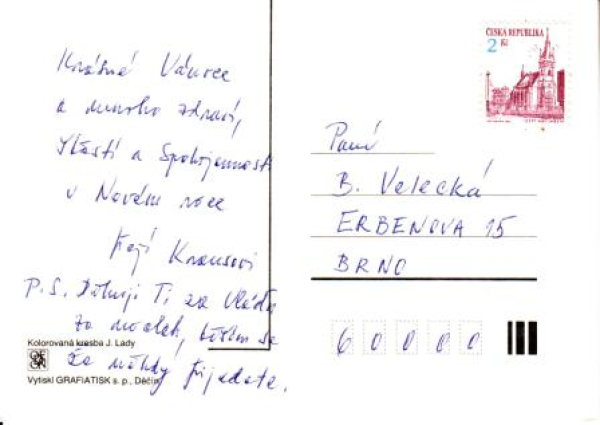 Krásné Vánoce
a mnoho zdraví,
štěstí a Spokojenosti
v Novém roce
Přejí Krausovi
P.S. Děkuji Ti za Vláďu
za
že někdy přijedete.
Kolorovaná kresba J. Lady
Vytiskl GRAFIATISK s. p., Děčín
ČESKÁ REPUBLIKA
2 Kč
Paní
B. Velecká
ERBENOVA 15
BRNO
60000